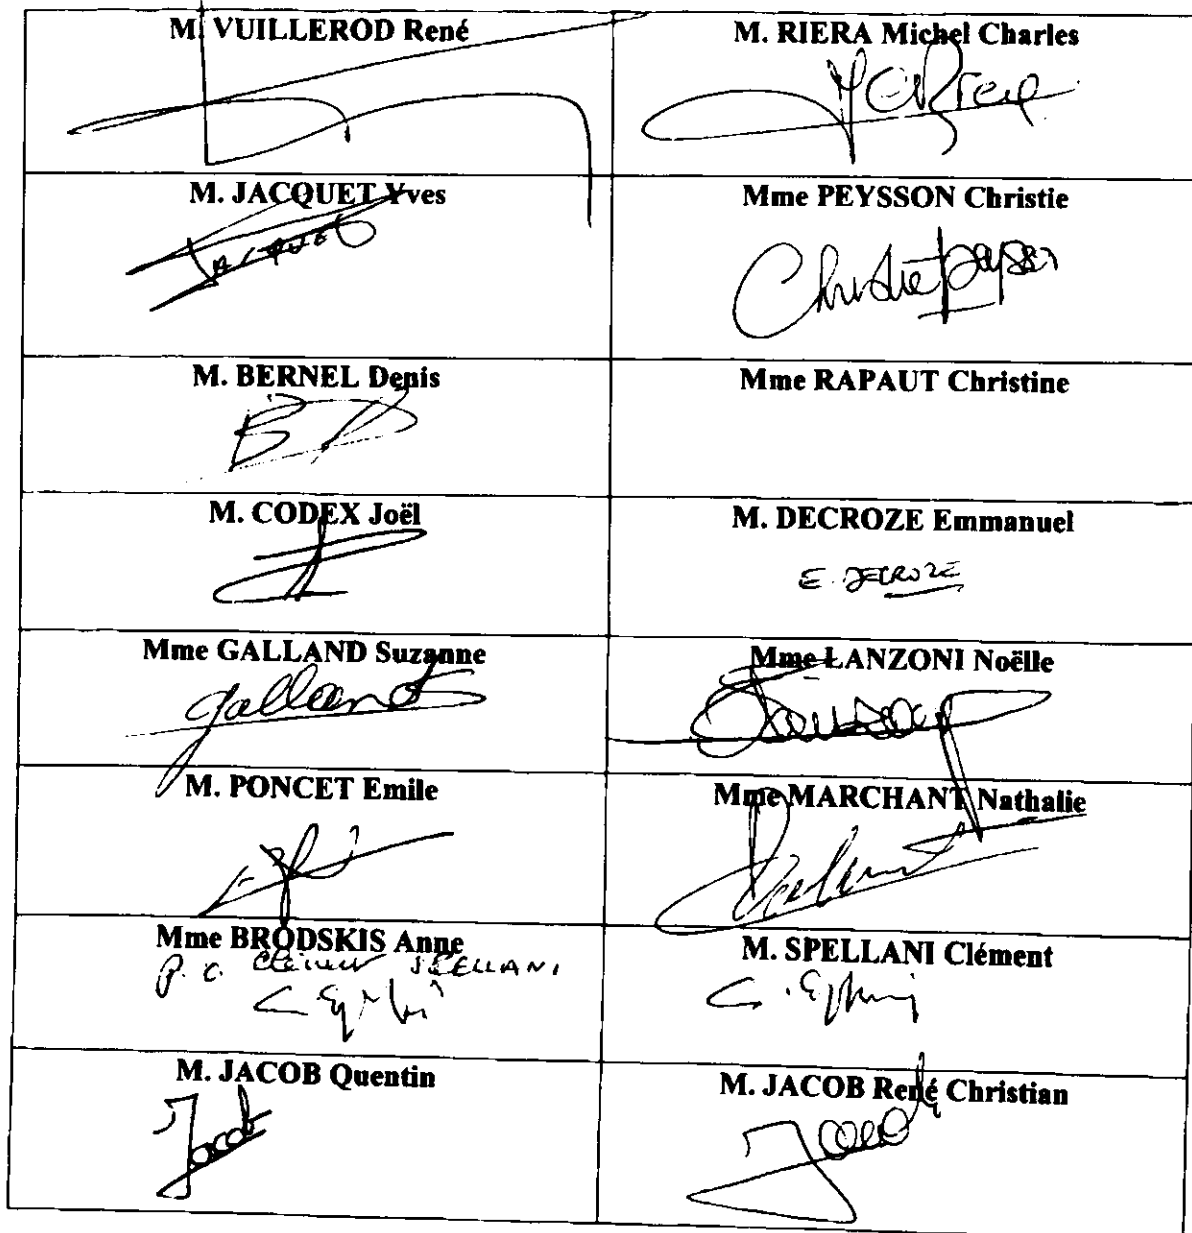 M. VUILLEROD René
M. RIERA Michel Charles
M. JACQUET Yves
Jacquet
Mme PEYSSON Christie
Christie Peysson
M. BERNEL Denis
Mme RAPAUT Christine
M. CODEX Joël
M. DECROZE Emmanuel
E. DECROZE
Mme GALLAND Suzanne
Galland
Mme LANZONI Noëlle
M. PONCET Emile
Mme MARCHANT Nathalie
Mme BRODSKIS Anne
P. O. Clément SPELLANI
M. SPELLANI Clément
M. JACOB Quentin
Jacob
M. JACOB René Christian
Jacob